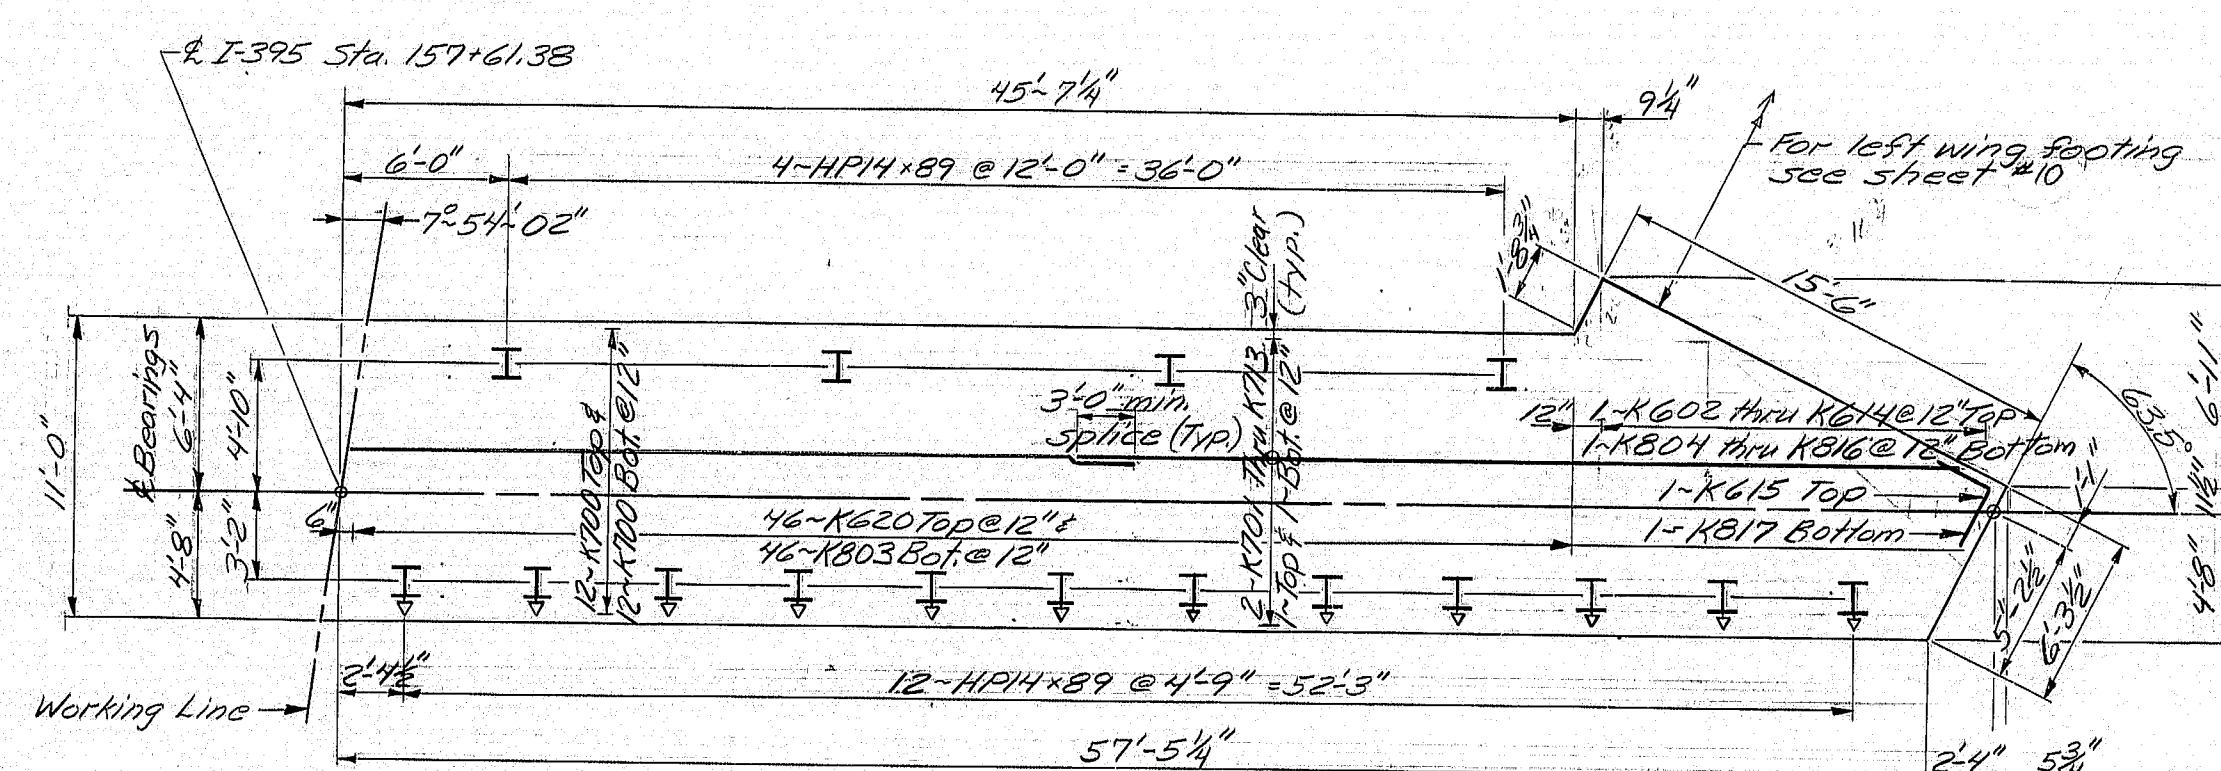 ℄ I-395 Sta. 157+61.38
45'~7¼"
9¼"
For left wing footing
see sheet #10
6'-0"
4~HP14×89 @ 12'-0" = 36'-0"
7°~54'~02"
1'-8¾"
3" Clear
(typ.)
15'-6"
11'-0"
℄ Bearings
6'-4"
4'-10"
4'-8"
3'-2"
12~K700 Top &
12~K700 Bot. @ 12"
3'-0" min.
splice (Typ.)
2~K701 thru K713
1~Top & 1~Bot. @ 12"
12"
1~K602 thru K614 @ 12" Top
1~K804 thru K816 @ 12" Bottom
63.5°
6'-11"
1'-1"
1~K615 Top
1~K817 Bottom
1½"
6"
46~K620 Top @ 12" &
46~K803 Bot. @ 12"
5'-2½"
6'-3½"
4'-8"
2'-4½"
12~HP14×89 @ 4'-9" = 52'-3"
Working Line
57'-5¼"
2'-4"
5¾"